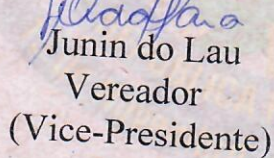 Junin do Lau
Vereador
(Vice-Presidente)